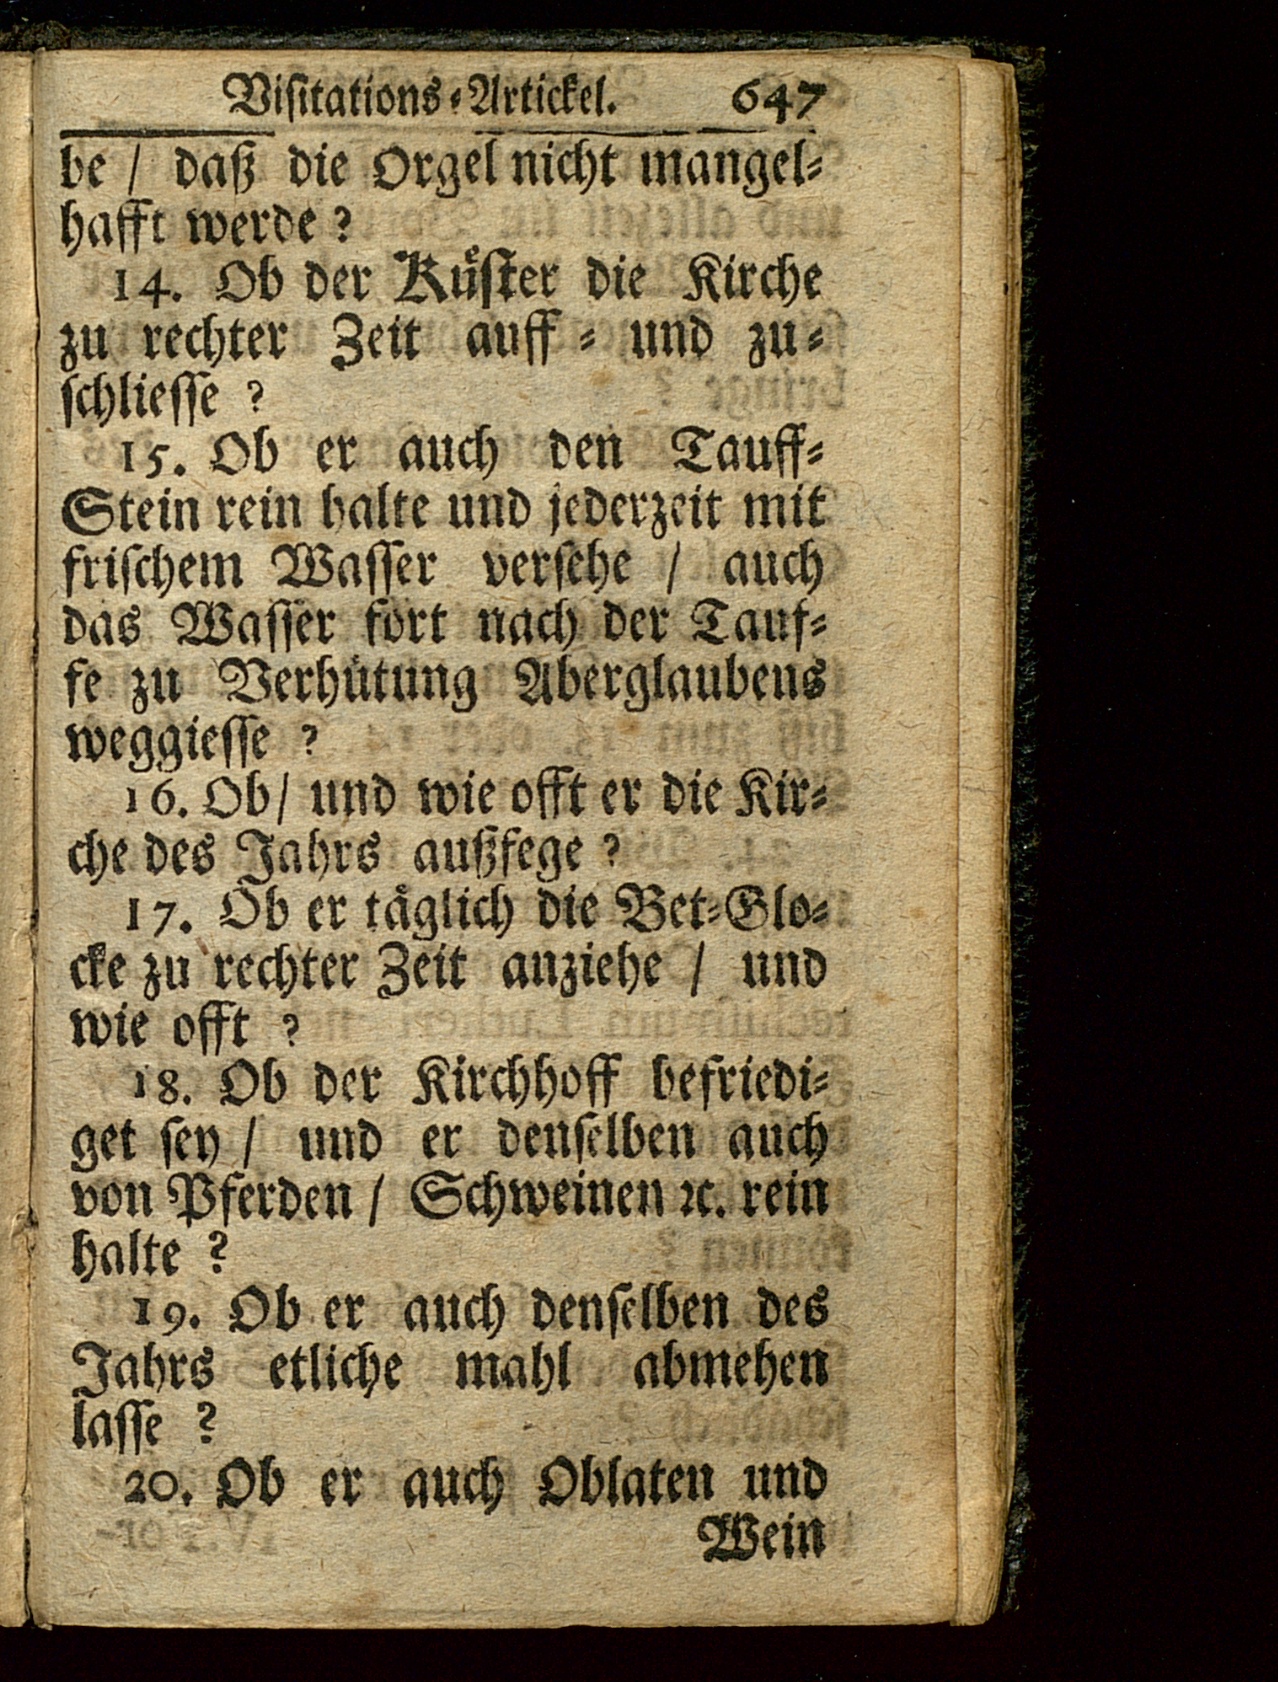 Visitations-Artickel. 647
be / daß die Orgel nicht mangel-
hafft werde ?
14. Ob der Küster die Kirche
zu rechter Zeit auff - und zu-
schliesse ?
15. Ob er auch den Tauff-
Stein rein halte und jederzeit mit
frischem Wasser versehe / auch
das Wasser fort nach der Tauf-
fe zu Verhütung Aberglaubens
weggiesse ?
16. Ob / und wie offt er die Kir-
che des Jahrs außfege ?
17. Ob er täglich die Bet-Glo-
cke zu rechter Zeit anziehe / und
wie offt ?
18. Ob der Kirchhoff befriedi-
get sey / und er denselben auch
von Pferden / Schweinen ꝛc. rein
halte ?
19. Ob er auch denselben des
Jahrs etliche mahl abmehen
lasse ?
20. Ob er auch Oblaten und
Wein